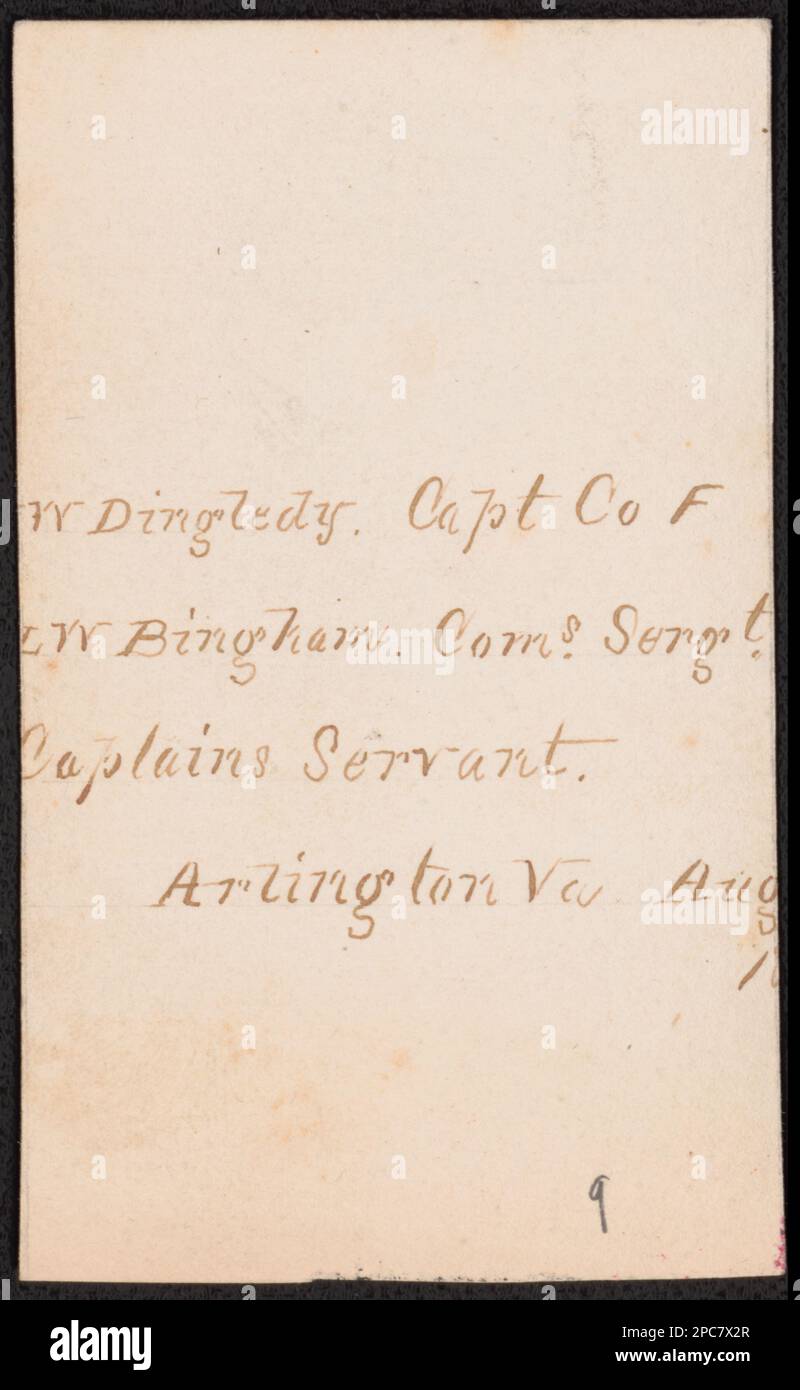 W Dingledy. Capt Co F
W Bingham. Coms. Sergt.
Captains Servant.
Arlington Va Aug
9
alamy
Image ID: 2PC7X2R
www.alamy.com